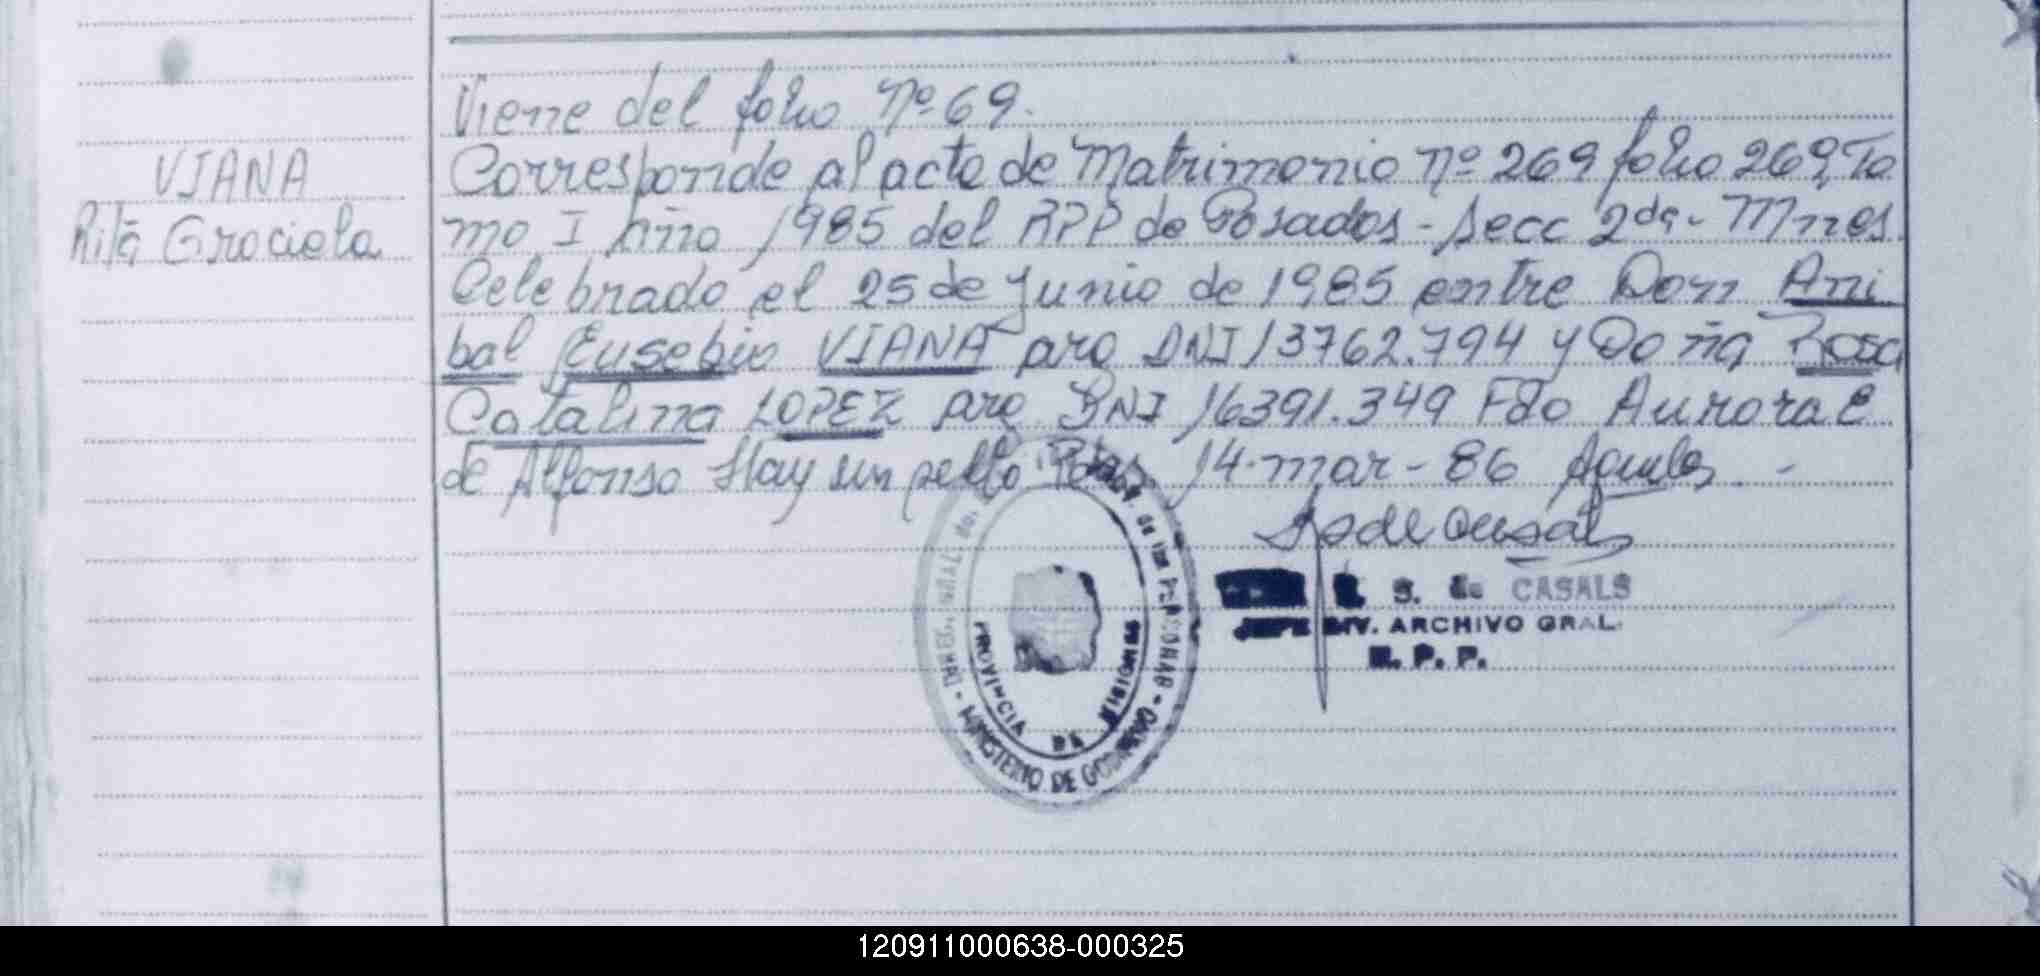 Viene del folio Nº 69.
VIANA
Rita Graciela
Corresponde al acta de Matrimonio nº 269 folio 269 To
mo I Año 1985 del RPP de Posadas - Secc 2da - Mnes.
Celebrado el 25 de Junio de 1985 entre Don Ani
bal Eusebio VIANA arg DNI 13762.794 y Doña Rosa
Catalina LOPEZ arg DNI 16391.349 Fdo Aurora E
de Alfonso Hay un sello Pdas 14-mar-86
S. de CASALS
JEFE DIV. ARCHIVO GRAL.
R. P. P.
PROVINCIA DE MISIONES
MINISTERIO DE GOBIERNO
de las PERSONAS
120911000638-000325